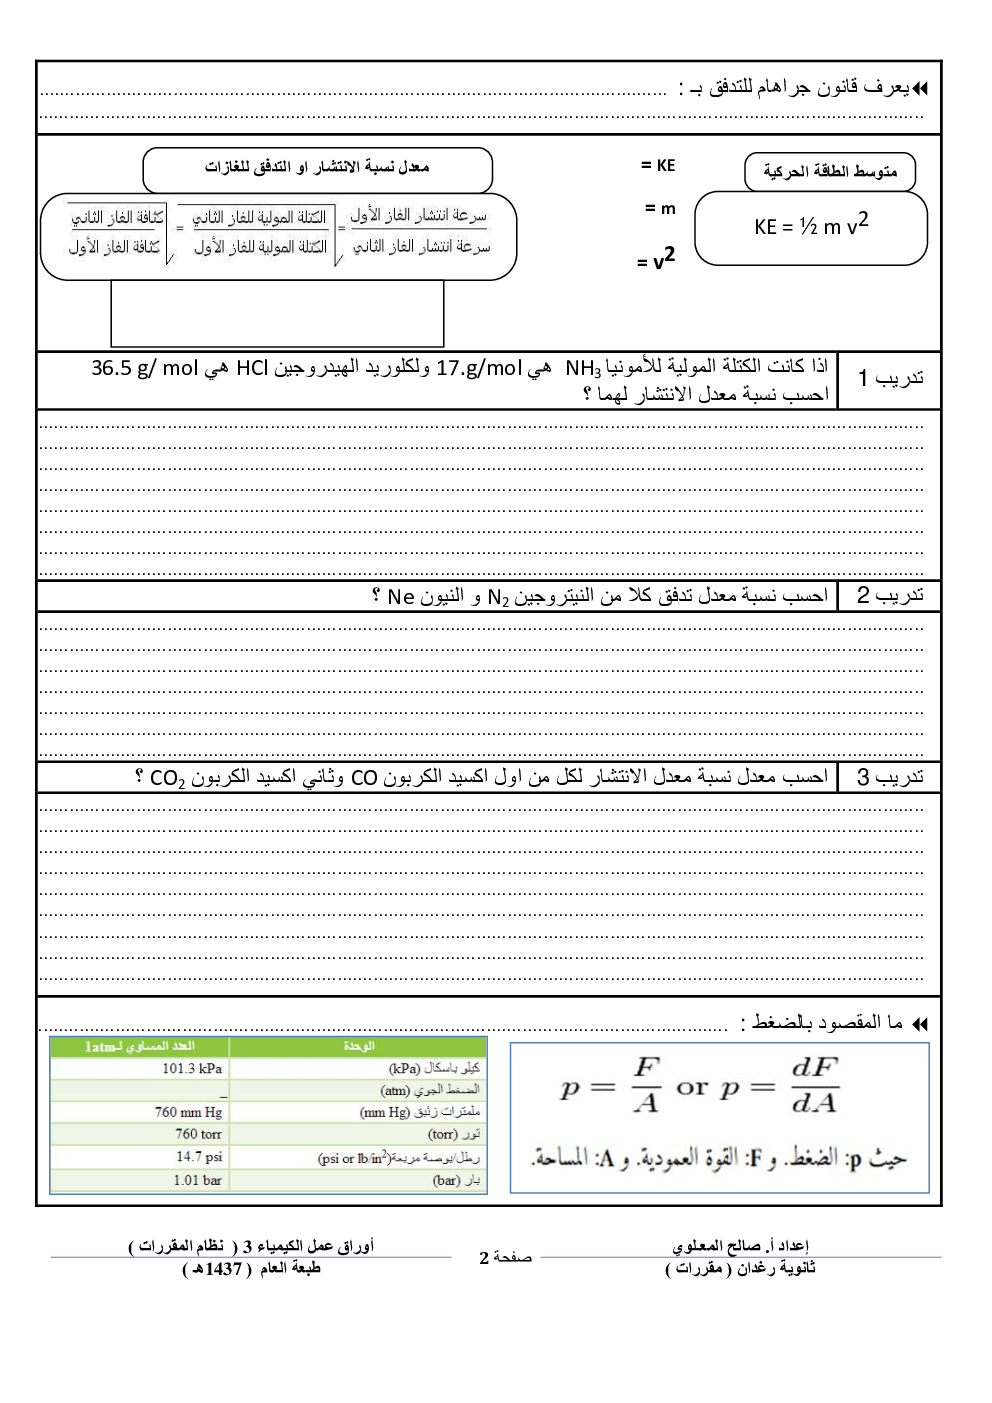 يعرف قانون جراهام للتدفق بـ : ........................................................................................................
....................................................................................................................................................
متوسط الطاقة الحركية
KE = ½ m v2
= KE
= m
= v2
معدل نسبة الانتشار او التدفق للغازات
سرعة انتشار الغاز الأول / سرعة انتشار الغاز الثاني = √ الكتلة المولية للغاز الثاني / الكتلة المولية للغاز الأول = √ كثافة الغاز الثاني / كثافة الغاز الأول
تدريب 1
اذا كانت الكتلة المولية للأمونيا NH3 هي 17.g/mol ولكلوريد الهيدروجين HCl هي 36.5 g/ mol
احسب نسبة معدل الانتشار لهما ؟
تدريب 2
احسب نسبة معدل تدفق كلا من النيتروجين N2 و النيون Ne ؟
تدريب 3
احسب معدل نسبة معدل الانتشار لكل من اول اكسيد الكربون CO وثاني اكسيد الكربون CO2 ؟
ما المقصود بالضغط : ........................................................................................................
p = F/A or p = dF/dA
حيث p: الضغط. و F: القوة العمودية. و A: المساحة.
الوحدة العدد المساوي لـ1atm
كيلو باسكال (kPa) 101.3 kPa
الضغط الجوي (atm) _
ملمترات زئبق (mm Hg) 760 mm Hg
تور (torr) 760 torr
رطل/بوصة مربعة(psi or lb/in2) 14.7 psi
بار (bar) 1.01 bar
إعداد أ. صالح المعلوي
ثانوية رغدان ( مقررات )
صفحة 2
أوراق عمل الكيمياء 3 ( نظام المقررات )
طبعة العام ( 1437هـ )